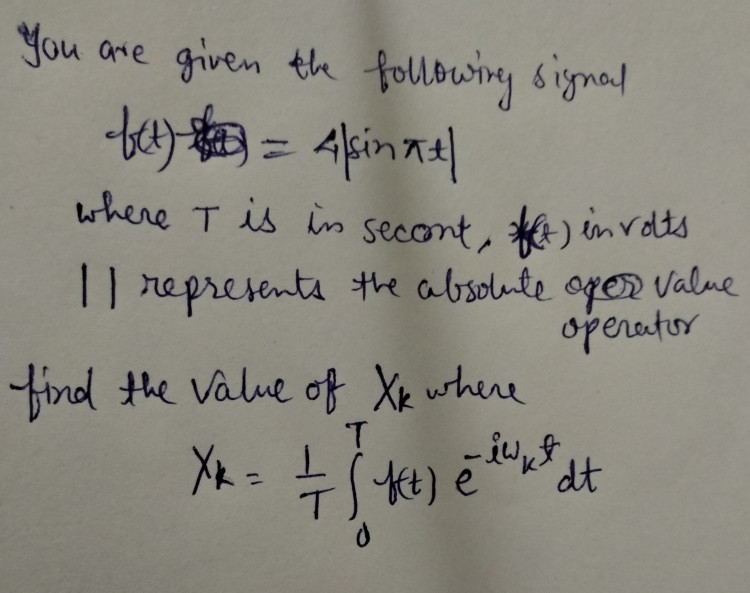 You are given the following signal
f(t) = 4|sin πt|
where T is in secont, f(t) in volts
| | represents the absolute value
operator
find the value of Xk where
Xk = 1/T ∫₀ᵀ f(t) e^{-iω_k t} dt